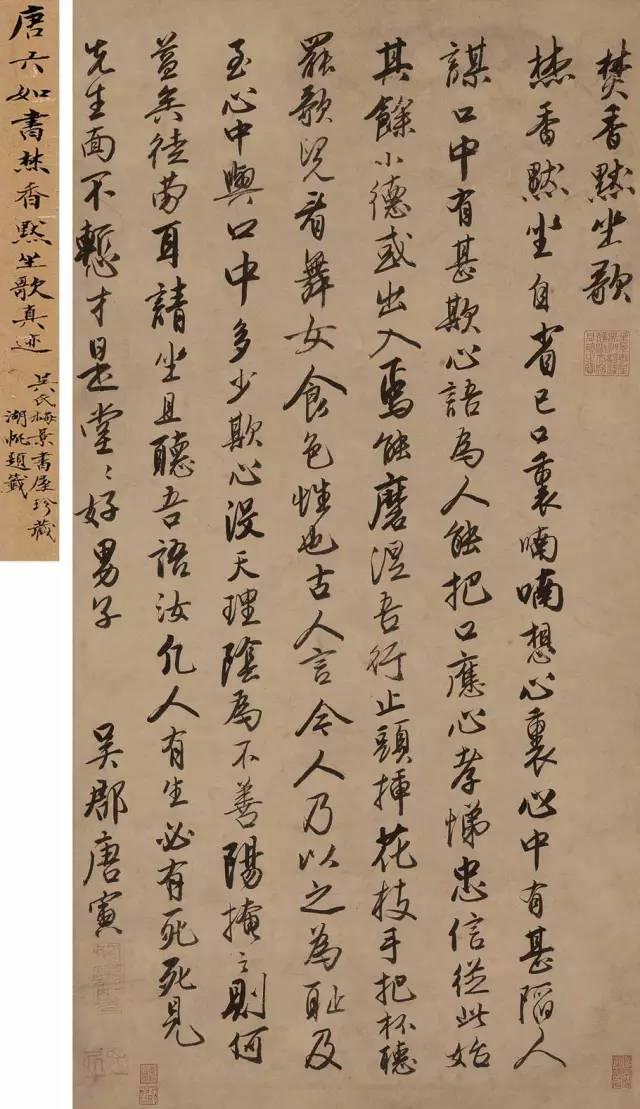 焚香默坐歌
焚香默坐自省己口裏喃喃想心裏心中有甚陷人
謀口中有甚欺心語為人能把口應心孝悌忠信從此始
其餘小德或出入焉能磨涅吾行止頭揷花枝手把杯聽
罷歌兒看舞女食色性也古人言今人乃以之為耻及
至心中與口中多少欺心沒天理陰為不善陽掩之則何
益矣徒勞耳請坐且聽吾語汝凡人有生必有死死見
先生面不慙才是堂〻好男子
吳郡唐寅
唐六如書焚香默坐歌真迹
吳氏梅景書屋珍藏
湖帆題籤